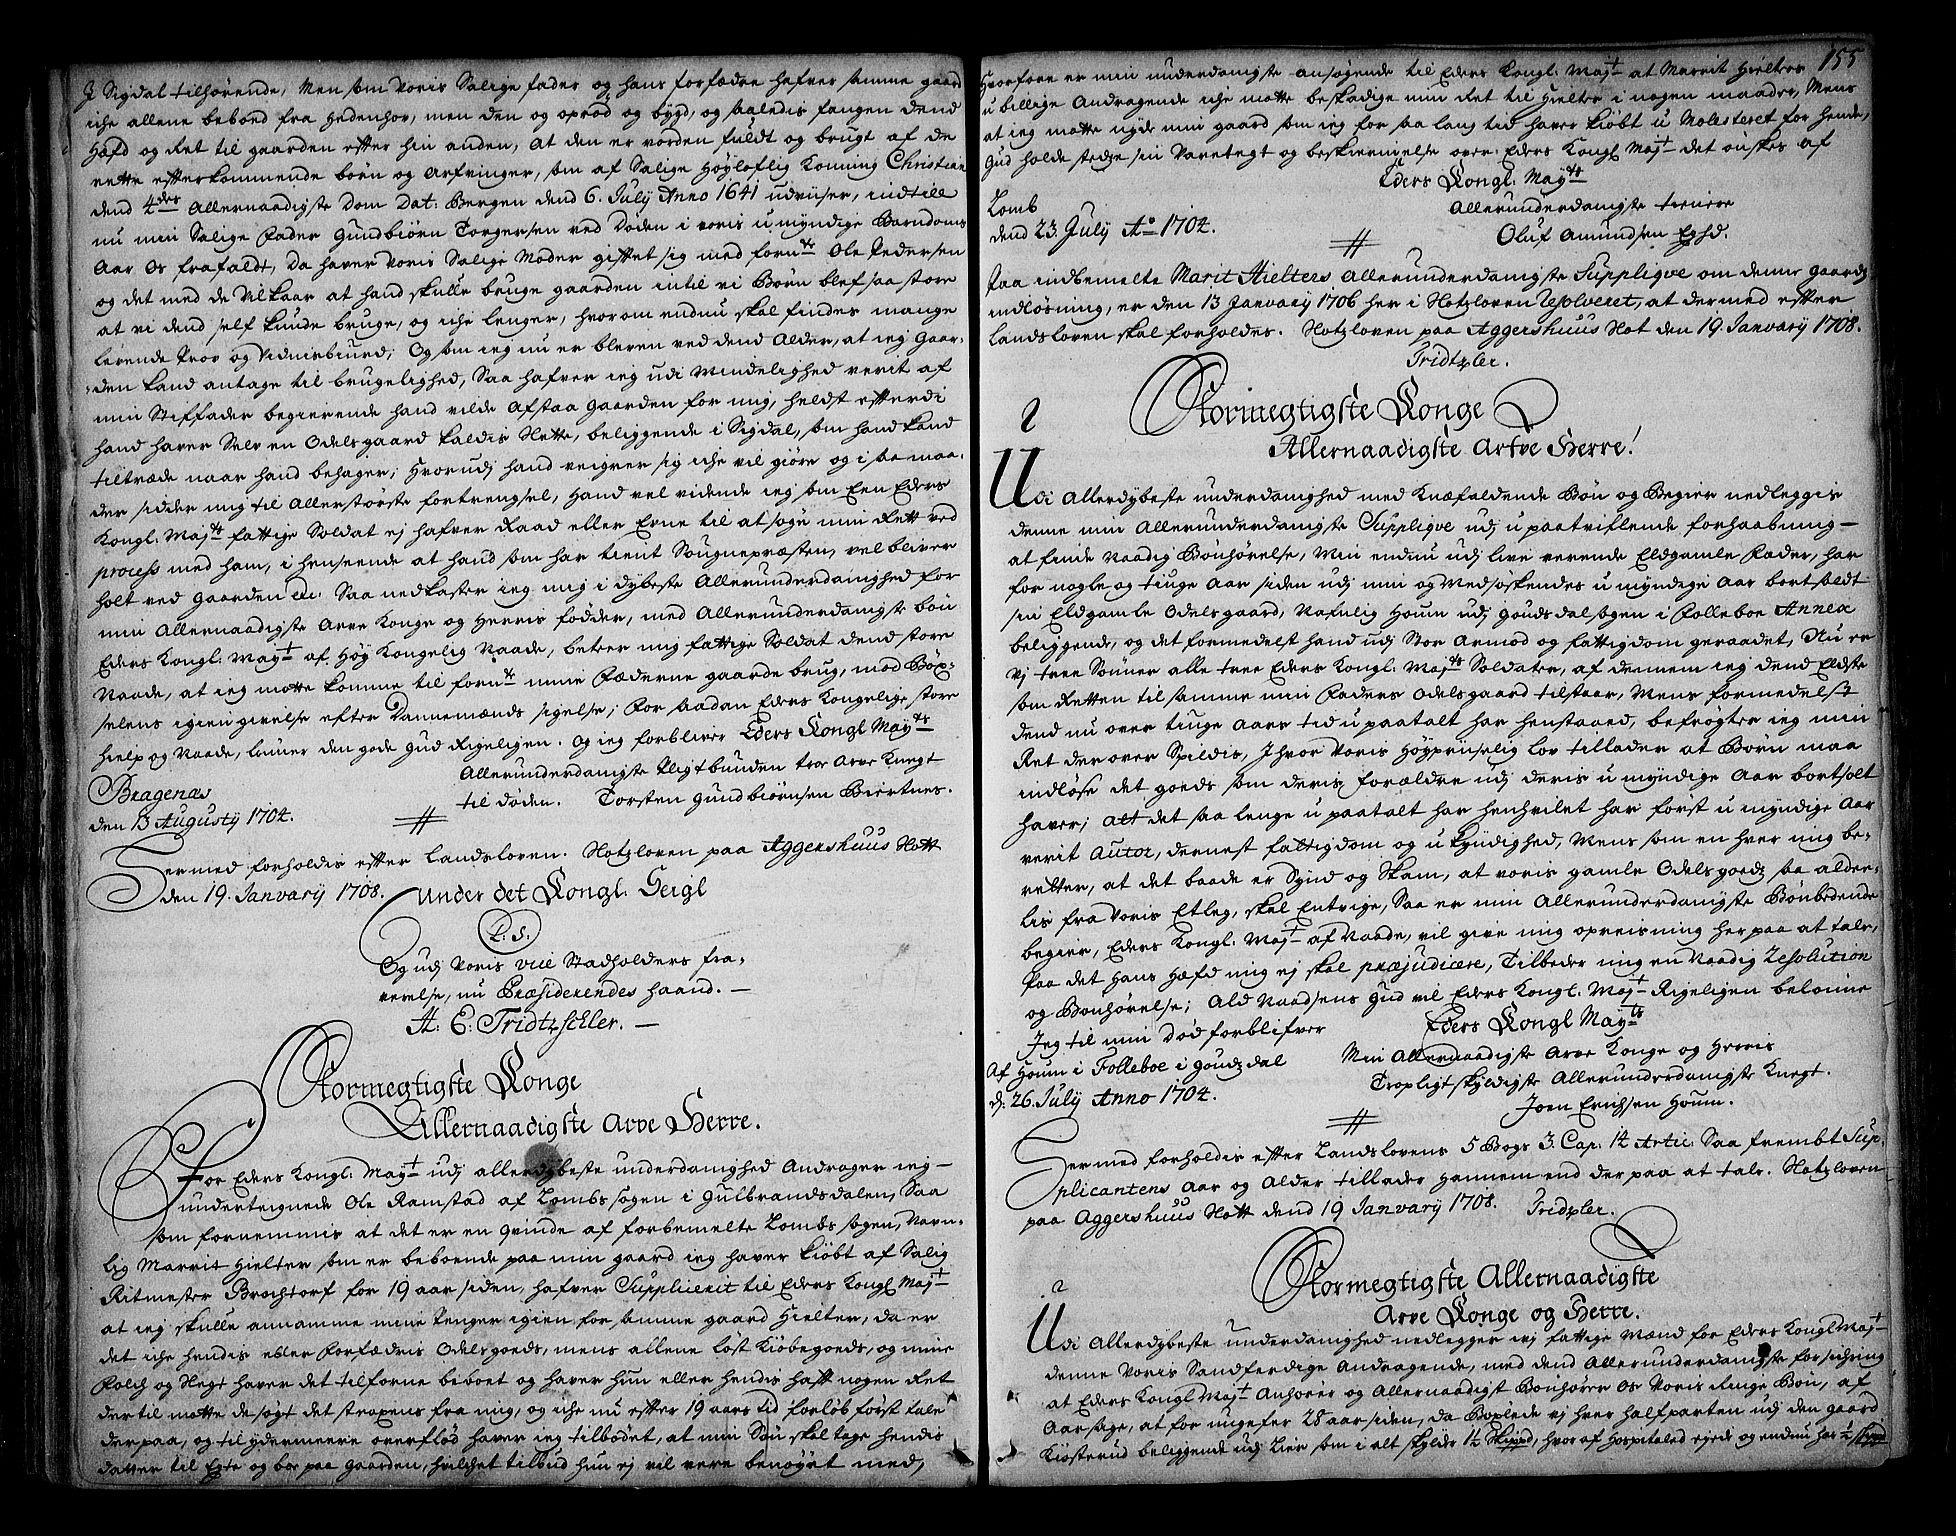 I Sigdal tilhørende, Men som Voris Salige fader og hans forfædre hafver samme gaard
iche allene beboed fra Hedenhov, men den og oprød og bygd, og saaledis fangen dend
Hafd og Ret til gaarden efter hin anden, at den er vorden fuldt og brugt af de
rette efterkommende børn og Arfvinger, som af Salige Høyloflig Konning Christian
dend 4des Allernaadigste Dom Dat: Bergen dend 6. July Anno 1641 udviser, indtill
nu min Salige Fader Gundbiørn Torgersen ved Døden i voris umyndige Barndoms
Aar os frafaldt, Da haver Voris Salige Moder giftet sig med fornte Ole Pedersen
og det med de Vilkaar at hand skulle bruge gaarden intil vi Børn blef saa store
at vi dend self kunde bruge, og iche lenger, hvorom endnu skal findes mange
levende Prov og Vidnisbiurd; Og som ieg nu er bleven ved dend Alder, at ieg Gaar-
den kand antage til brugelighed, Saa hafver ieg udi Mindelighed verit af
min Stiffader begierende hand vilde afstaa gaarden for mig, heldst efterdi
hand haver Selv en Odelsgaard kaldis Nette, beliggende i Sigdal, som hand kand
tiltræde naar hand behager; Hvorudj hand veigrer sig iche vil giøre og i saa maa-
der sidder mig til Allerstørste fortrengsel, Hand vel vidende ieg som Een Eders
Kongl: Mayts fattige Soldat ej hafver Raad eller Evne til at søge min Rett ved
process med ham, i henseende at hand som har tient Sougnepræsten, vel bliver
holt ved gaarden etc. Saa nedkaster ieg mig i dybeste Allerunderdanighed for
min Allernaadigste Arve Konge og Herris fødder, med Allerunderdanigste bøn
Eders Kongl: Mayt af Høy Kongelig Naade, beteer mig fattige Soldat dend store
Naade, at ieg motte komme til fornte mine Fæderne gaards brug, mod Bøx-
selens igiengivelse efter Dannemænds sigelse; For saadan Eders Kongelige store
hielp og Naade, lønner den gode Gud Rigeligen. Og ieg forbliver Eders Kongl Mayts
Allerunderdanigste Pligtbunden troe Arve Knegt
Bragenæs
til døden. Torsten Gundbiørnsen Biertnes.
den 13 Augusty 1704.
Hermed forholdis efter Landsloven. Slotzloven paa Aggershuus Slott
den 19. January 1708. Under det Kongl. Seigl
L: S:
Og udj Voris vice Stadholders fra-
verelse, nu Præsiderendes haand.
H: E: Tridtzschler.
Stormegtigste Konge
Allernaadigste Arve Herre.
For Eders Kongl: Mayt udj allerdybeste underdanighed Andrager ieg
underteignede Ole Ramstad af Lombs sogen i Gulbrandsdalen, Saa
som fornemmis at det er en qvinde af forbemelte Lombs sogen, Navn-
lig Marrit Hielter som er beboende paa min gaard ieg haver kiøbt af Salig
Ritmester Brochtorf for 19 aar siden, hafver Supplicerit til Eders Kongl Mayt
at ieg skulle annamme mine Penger igien for samme gaard Hielter, da er
det iche hendis eller Forfædris Odelsgoeds, mens allene løst Kiøbegoeds, og mine
Folch og Slegt haver det tilforne beboet og haver hun eller hendis hafft nogen Ret
dertil motte de søgt det straxens fra mig, og iche nu efter 19 aars tid forløb først tale
derpaa, og til ydermeere overflød haver ieg tilbødet, at min Søn skal tage hendis
datter til Egte og boe paa gaarden, hvilchet tilbud hun ej vil vere benøyet med,
155
Hvorfore er min underdanigste ansøgende til Eders Kongl: Mayt at Marrit Hielters
ubillige Andragende iche motte beskadige min Ret til Hielter i nogen maader, Mens
at ieg motte nyde min gaard som ieg for saa lang tid haver kiøbt u Molesteret for hende,
Gud holde stedse sin Varetegt og beskiermelse over Eders Kongl Mayt det ønskes af
Eders Kongl: Mayts
Lomb
Allerunderdanigste tienere
dend 23. July Ao 1704.
Oluf Amundsen Eghd.
Paa indbemelte Marit Hielters Allerunderdanigste Suppliqve om denne Gaards
indløsning, er den 13 January 1706 her i Slotzloven Resolveret, at dermed efter
Landsloven skal forholdes. Slotzloven paa Aggershuus Slot den 19 January 1708.
Tridtzler.
Stormegtigste Konge
Allernaadigste Arfve Herre!
Udi Allerdybeste underdanighed med Knæfaldende Bøn og Begier nedleggis
denne min Allerunderdanigste Suppliqve udj u paatviflende forhaabning
at finde Naadig Bønhørelse, Min endnu udj live verende Eldgamle Fader, har
for nogle og tiuge Aar siden udj min og Medsøskendes u myndige Aar bortsældt
sin Eldgamle Odelsgaard, Nafnlig Houm udj Gouds dal sogen i Folleboe Annex
beliggende, og det formedelst hand udj Stor Armod og fattigdom geraadet, Nu er
Vj tree Sønner alle tree Eders Kongl: Mayts Soldater, af dennem ieg dend Eldste
som Retten til samme min Faders Odelsgaard tilstaar, Mens formedelst
dend nu over tiuge Aars tid u paatalt har henstaaed, befrøgter ieg min
Ret der over Spildis, Jhvor Voris Høyprüselig Lov tillader at Børn maa
indløse det goeds som deris forældre udj deris u myndige Aar bortsolt
haver; alt det saa lenge u paatalt har henhvilet har først u myndige Aar
verit Autor, dernest fattigdom og u kyndighed, Mens som en hver mig be-
retter, at det baade er Synd og Skam, at voris gamle Odelsgoeds saa alde-
lis fra Voris Etleg, skal Entvige, Saa er min Allerunderdanigste Bønbedende
begier, Eders Kongl: Mayt af Naade, vil give mig opreisning herpaa at tale,
Paa det Hans Hæfd mig ej skal præjudicere, Tilbeder mig en Naadig Resolution
og Bønhørelse; Ald Naadsens Gud vil Eders Kongl: Mayt Rigeligen belønne
Jeg til min Død forblifver
Eders Kongl Mayts
Af Houm i Folleboe i Goudsdal
Min Allernaadigste Arve Konge og Herris
d: 26. July Anno 1704.
Tropligtskyldigste Allerunderdanigste Knegt.
Joen Erichsen Houm.
Hermed forholdis efter Landslovens 5 Bogs 3. Cap: 14 Artic: Saa fremt Sup-
plicantens Aar og Alder tillader Hannem end der paa at tale. Slotzloven
paa Aggershuus Slott dend 19 January 1708. Tridtzler.
Stormegtigste Allernaadigste
Arve Konge og Herre.
Udi Allerdybeste underdanighed nedlegger vj fattige Mænd for Eders Kongl Mayt
denne Voris Sandferdige Andragende, med dend Allerunderdanigste forsichring
at Eders Kongl Mayt Anhører og Allernaadigst Bønhører os Voris Ringe Bøn, af
Aarsage, at for ungefer 28 aar siden, da Boxlede vj hver halfparten udj den gaard
Kiøsterud beliggende udj Lier som i alt skylder 1½ Skippd, hvor af Hospitaled ejede og endnu har ½ Skippd